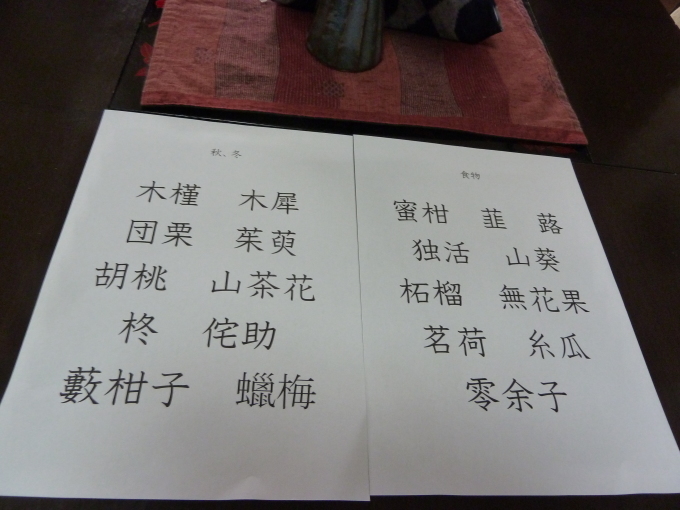 秋、冬
木槿 木犀
団栗 茱萸
胡桃 山茶花
柊 侘助
藪柑子 蠟梅
食物
蜜柑 韮 蕗
独活 山葵
柘榴 無花果
茗荷 糸瓜
零余子